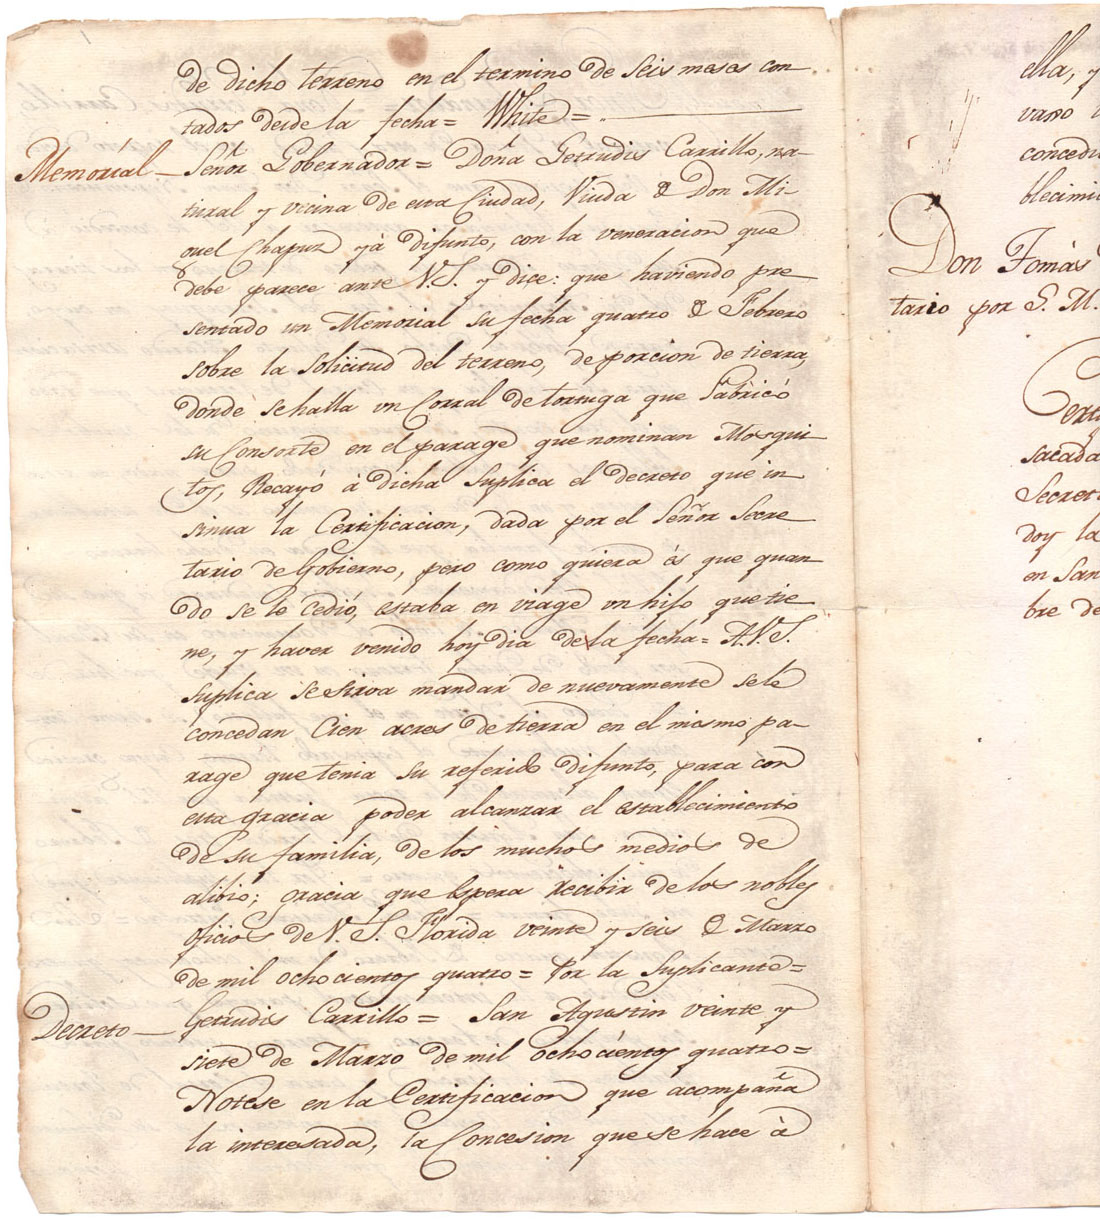 de dicho terreno en el termino de seis meses con-
tados desde la fecha = White = .
Memorial — Señor Gobernador = Doña Getrudis Carrillo, na-
tural y vicina de esta Ciudad, Viuda de Don Mi-
guel Chapuz yà difunto, con la veneracion que
debe parece ante V.S. y dice: que haviendo pre
sentado un Memorial su fecha quatro de Febrero
sobre la Solicitud del terreno, de porcion de tierra,
donde se halla un Corral de tortuga que Fabricó
su Consorte en el parage que nominan Mosqui-
tos, Recayó à dicha Suplica el decreto que in
sinua la Certificacion, dada por el Señor Secre
tario de Gobierno, pero como quiera és que quan
do se le cedió, estaba en viage un hijo que tie
ne, y haver venido hoy dia de la fecha = A.V.S.
suplica se sirva mandar de nuevamente se le
concedan Cien acres de tierra en el mismo pa-
rage que tenia su referido difunto, para con
esta gracia poder alcanzar el establecimiento
de su familia, de los muchos medios de
alibio; gracia que espera recibir de los nobles
oficios de V. S. Florida veinte y seis de Marzo
de mil ochocientos quatro = Por la Suplicante =
Decreto — Getrudis Carrillo = San Agustin veinte y
siete de Marzo de mil ochocientos quatro =
Notese en la Certificacion que acompaña
la interesada, la Concesion que se hace à
ella, y
concedi
blecimi
Don Tomàs
tario por S. M.
sacada
Secret
doy la
en San
bre de